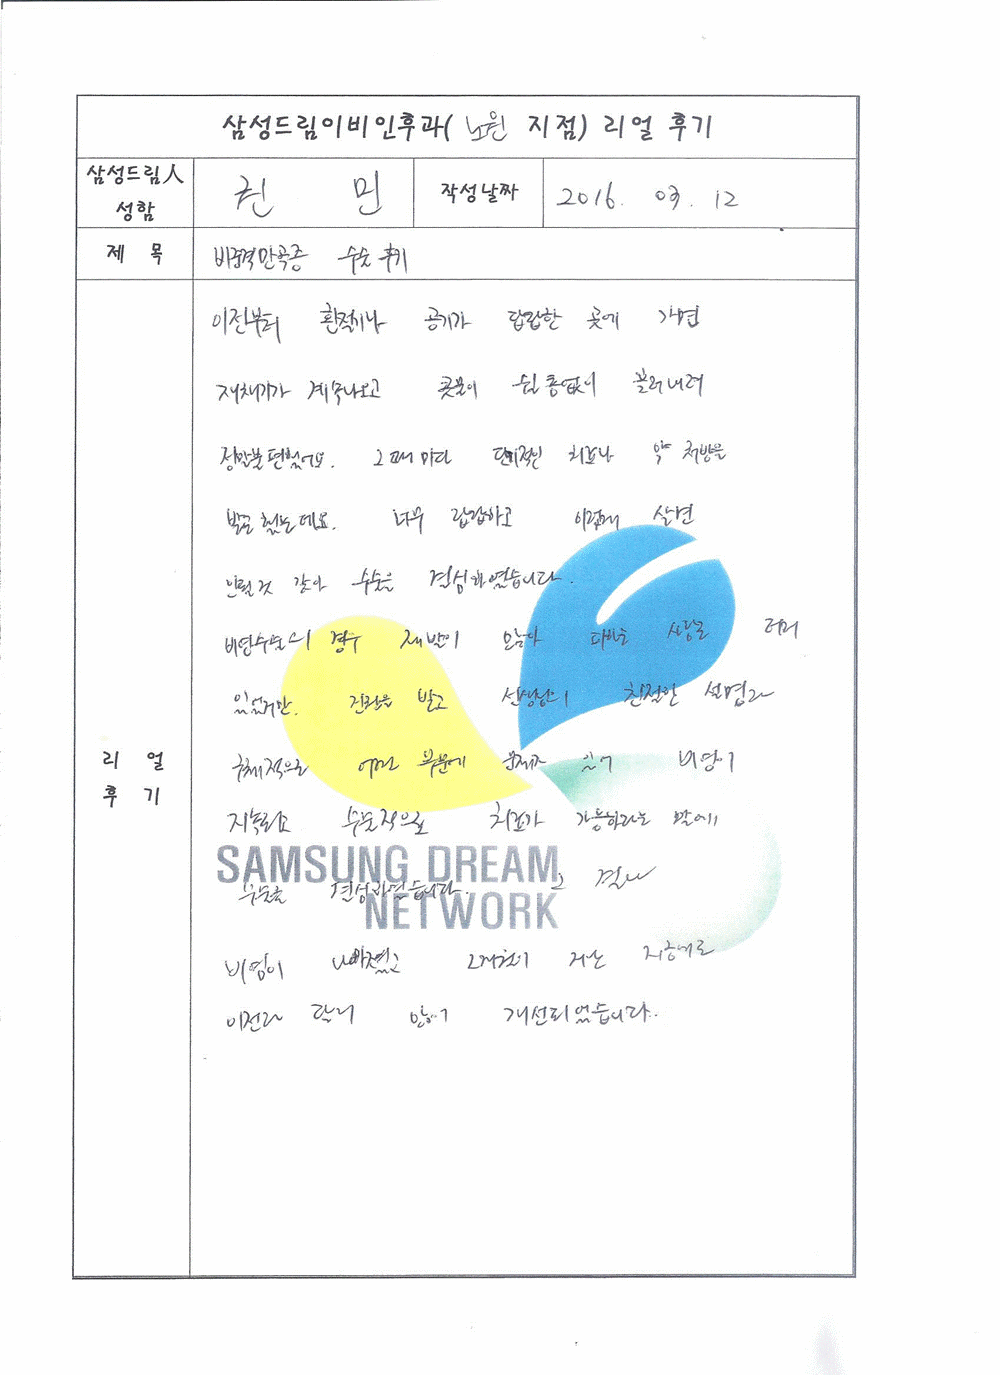 삼성드림이비인후과( 노원 지점) 리얼 후기
삼성드림人 성함 권 민 작성날짜 2016. 03. 12
제 목 비중격만곡증 수술 후기
리 얼 후 기
이전부터 환절기나 공기가 답답한 곳에 가면
재채기가 계속나오고 콧물이 쉴틈없이 흘러내려
정말불편했어요. 그때마다 단기적인 치료나 약 처방을
받곤 했는데요. 너무 답답하고 이렇게 살면
안될것 같아 수술을 결심하였습니다.
비염수술의 경우 재발이 많다 하는
있었지만. 진찰을 받고 선생님의 친절한 설명과
구체적으로 어떤 부분에 문제가 있어 비염이
지속되고 수술적으로 치료가 가능하다는 말에
수술을 결심하였습니다. 그 결과
SAMSUNG DREAM
NETWORK
비염이 2개월이 지난 지금에도
이전과 달리 많이 개선되었습니다.